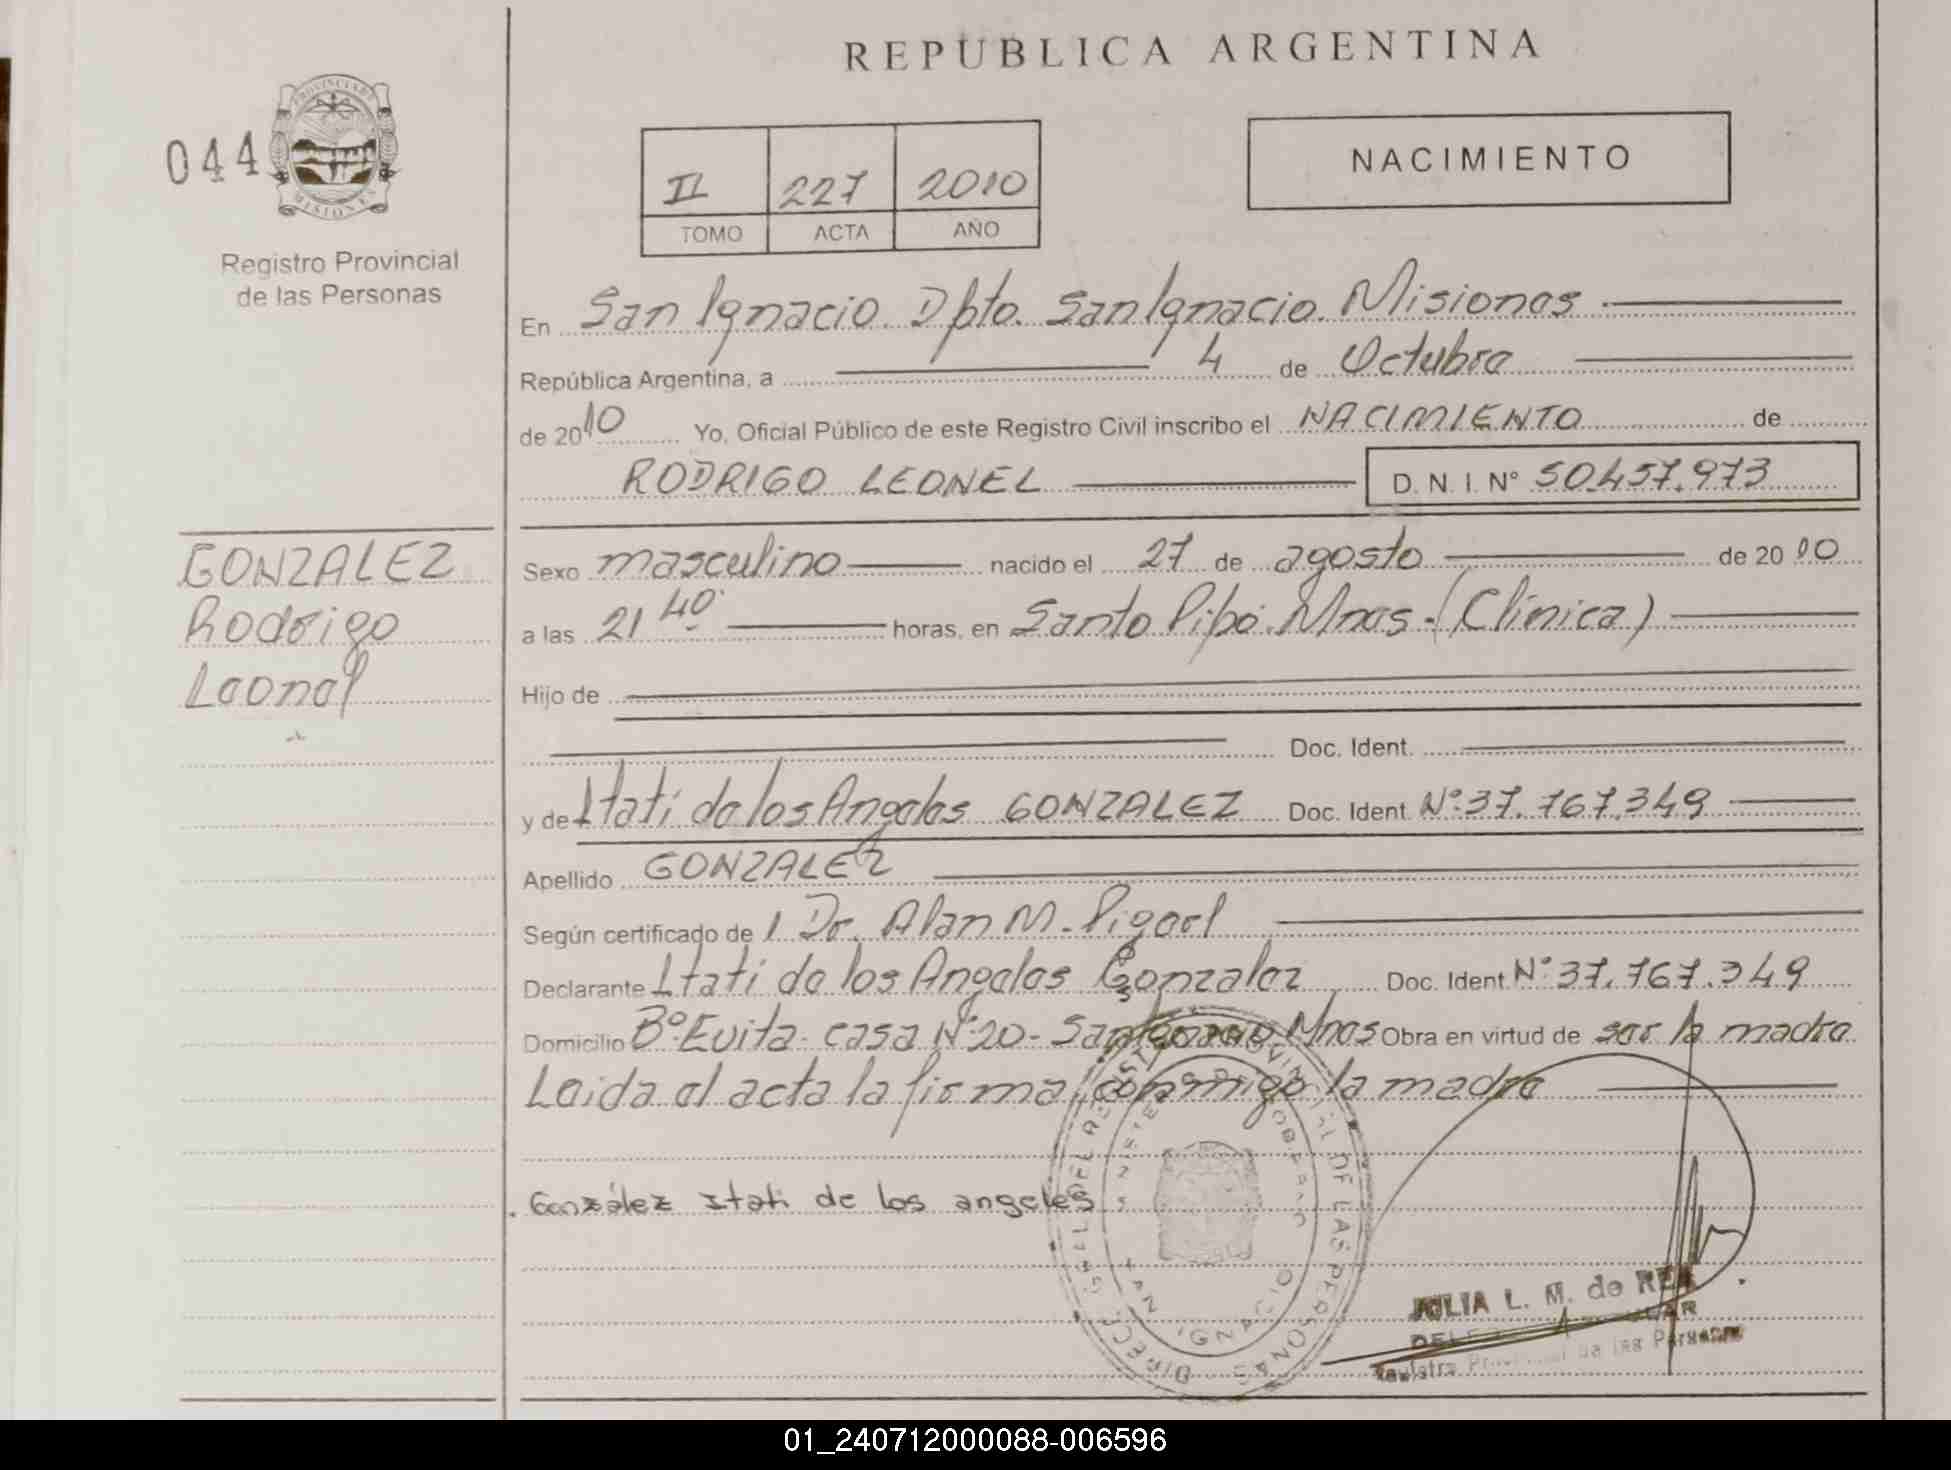 REPUBLICA ARGENTINA
044
PROVINCIA DE
MISIONES
Registro Provincial
de las Personas
II 227 2010
TOMO ACTA AÑO
NACIMIENTO
En San Ignacio. Dpto. San Ignacio. Misiones
República Argentina, a 4 de Octubre
de 2010 Yo, Oficial Público de este Registro Civil inscribo el NACIMIENTO de
RODRIGO LEONEL D.N.I. N° 50.457.973
GONZALEZ
Rodrigo
Leonel
Sexo masculino nacido el 27 de agosto de 2010
a las 21 40 horas, en Santo Pipó. Mnes - (Clínica)
Hijo de
Doc. Ident.
y de Itatí de los Angeles GONZALEZ Doc. Ident. N° 37.767.349
Apellido GONZALEZ
Según certificado de l Dr. Alan M.
Declarante Itatí de los Angeles Gonzalez Doc. Ident. N° 37.767.349
Domicilio B° Evita - casa N° 20 - San Ignacio Mnes Obra en virtud de ser la madre
Leida el acta la firma conmigo la madre
González Itati de los angeles
SAN IGNACIO
JULIA L. M. de
Registro Provincial de las Personas
01_240712000088-006596